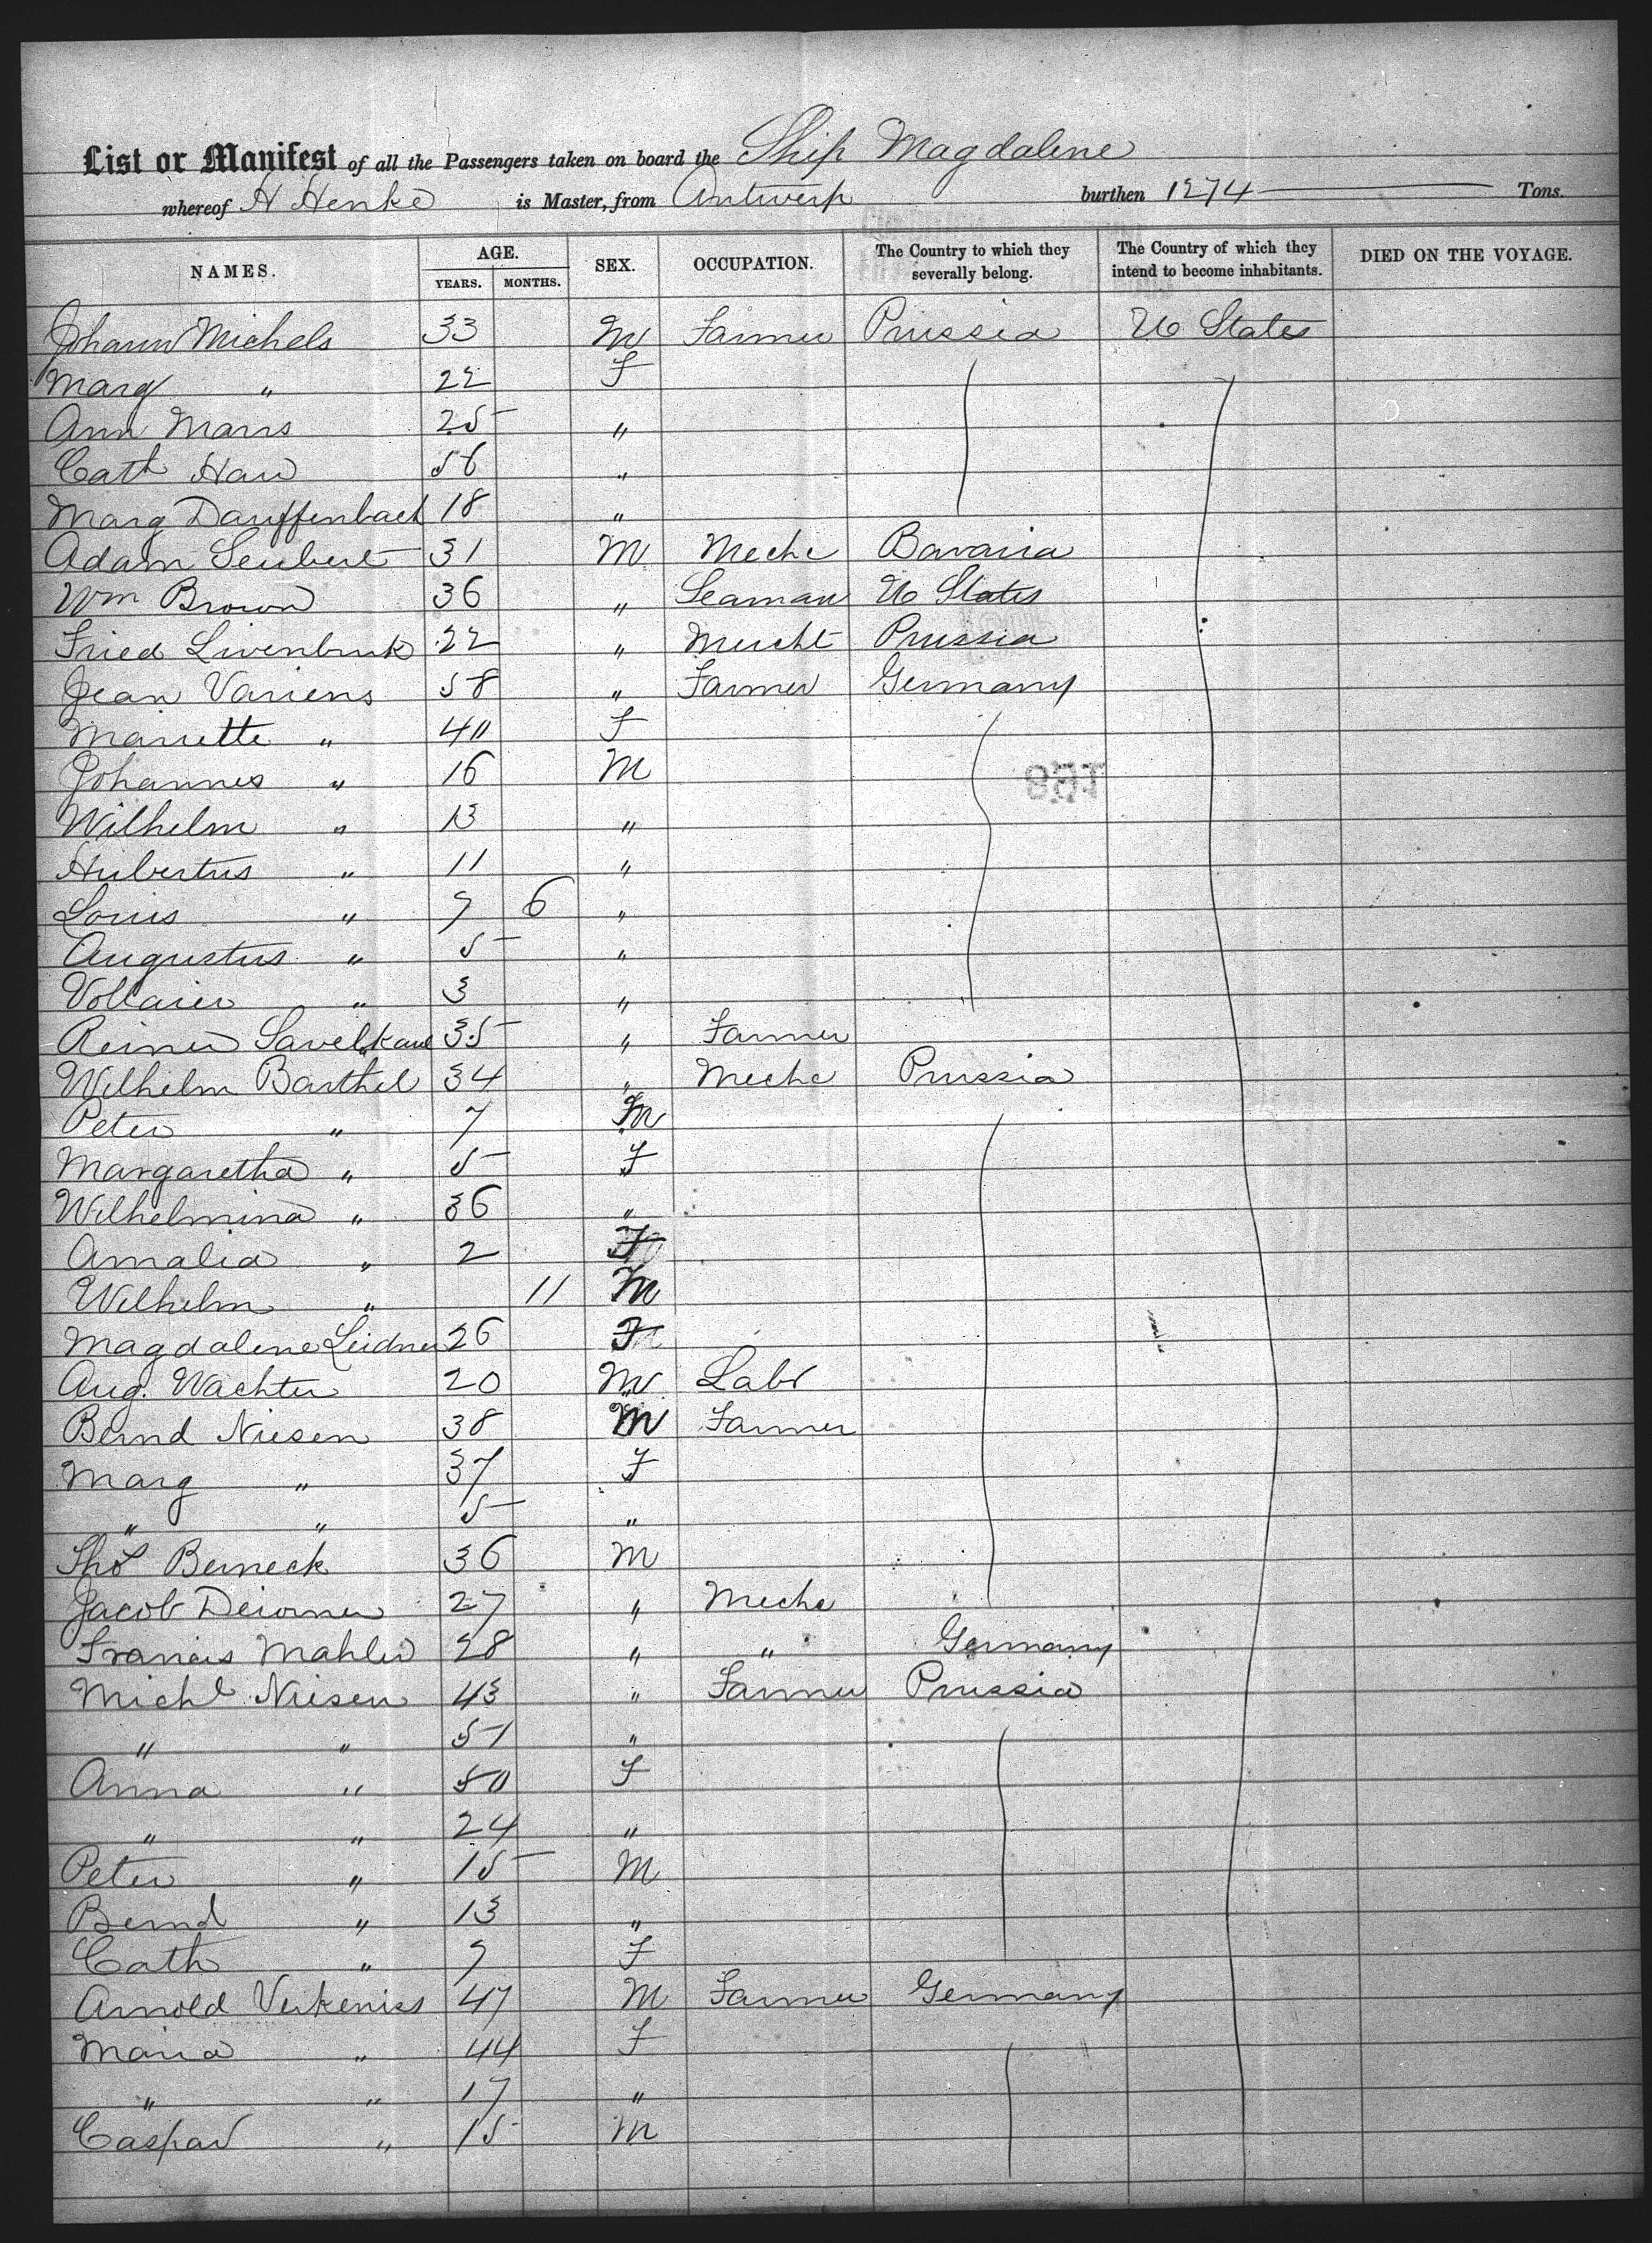 List or Manifest of all the Passengers taken on board the Ship Magdalene
whereof H Henke is Master, from Antwerp burthen 1274 Tons.
NAMES. AGE. YEARS. MONTHS. SEX. OCCUPATION. The Country to which they severally belong. The Country of which they intend to become inhabitants. DIED ON THE VOYAGE.
Johann Michels 33 M Farmer Prussia U States
Marg " 22 F
Ann Marrs 25 "
Cath Haw 56 "
Marg Dauffenbach 18 "
Adam Seubert 31 M Mechc Bavaria
Wm Brown 36 " Seaman U States
Fried Livenbruk 22 " Mercht Prussia
Jean Variens 58 " Farmer Germany
Mariette " 40 F
Johannes " 16 M
Wilhelm " 13 "
Hubertus " 11 "
Louis " 9 6 "
Augustus " 5 "
" 3 "
Reiner Savelkaul 35 " Farmer
Wilhelm Barthel 34 " Mechc Prussia
Peter " 7 M
Margaretha " 5 F
Wilhelmina " 36 "
Amalia " 2 F
Wilhelm " 11 M
Magdalene Leidner 26 F
Aug. Wachter 20 M Labr
Bernd Niesen 38 M Farmer
Marg " 37 F
" " 5 "
Thos Berneck 36 M
Jacob 27 " Mechc
Francis Mahler 28 " " Germany
Michl Niesen 43 " Farmer Prussia
" " 51 "
Anna " 50 F
" " 24 "
Peter " 15 M
Bernd " 13 "
Cath " 9 F
Arnold Verkeniss 47 M Farmer Germany
Maria " 44 F
" " 17 "
Caspar " 15 M